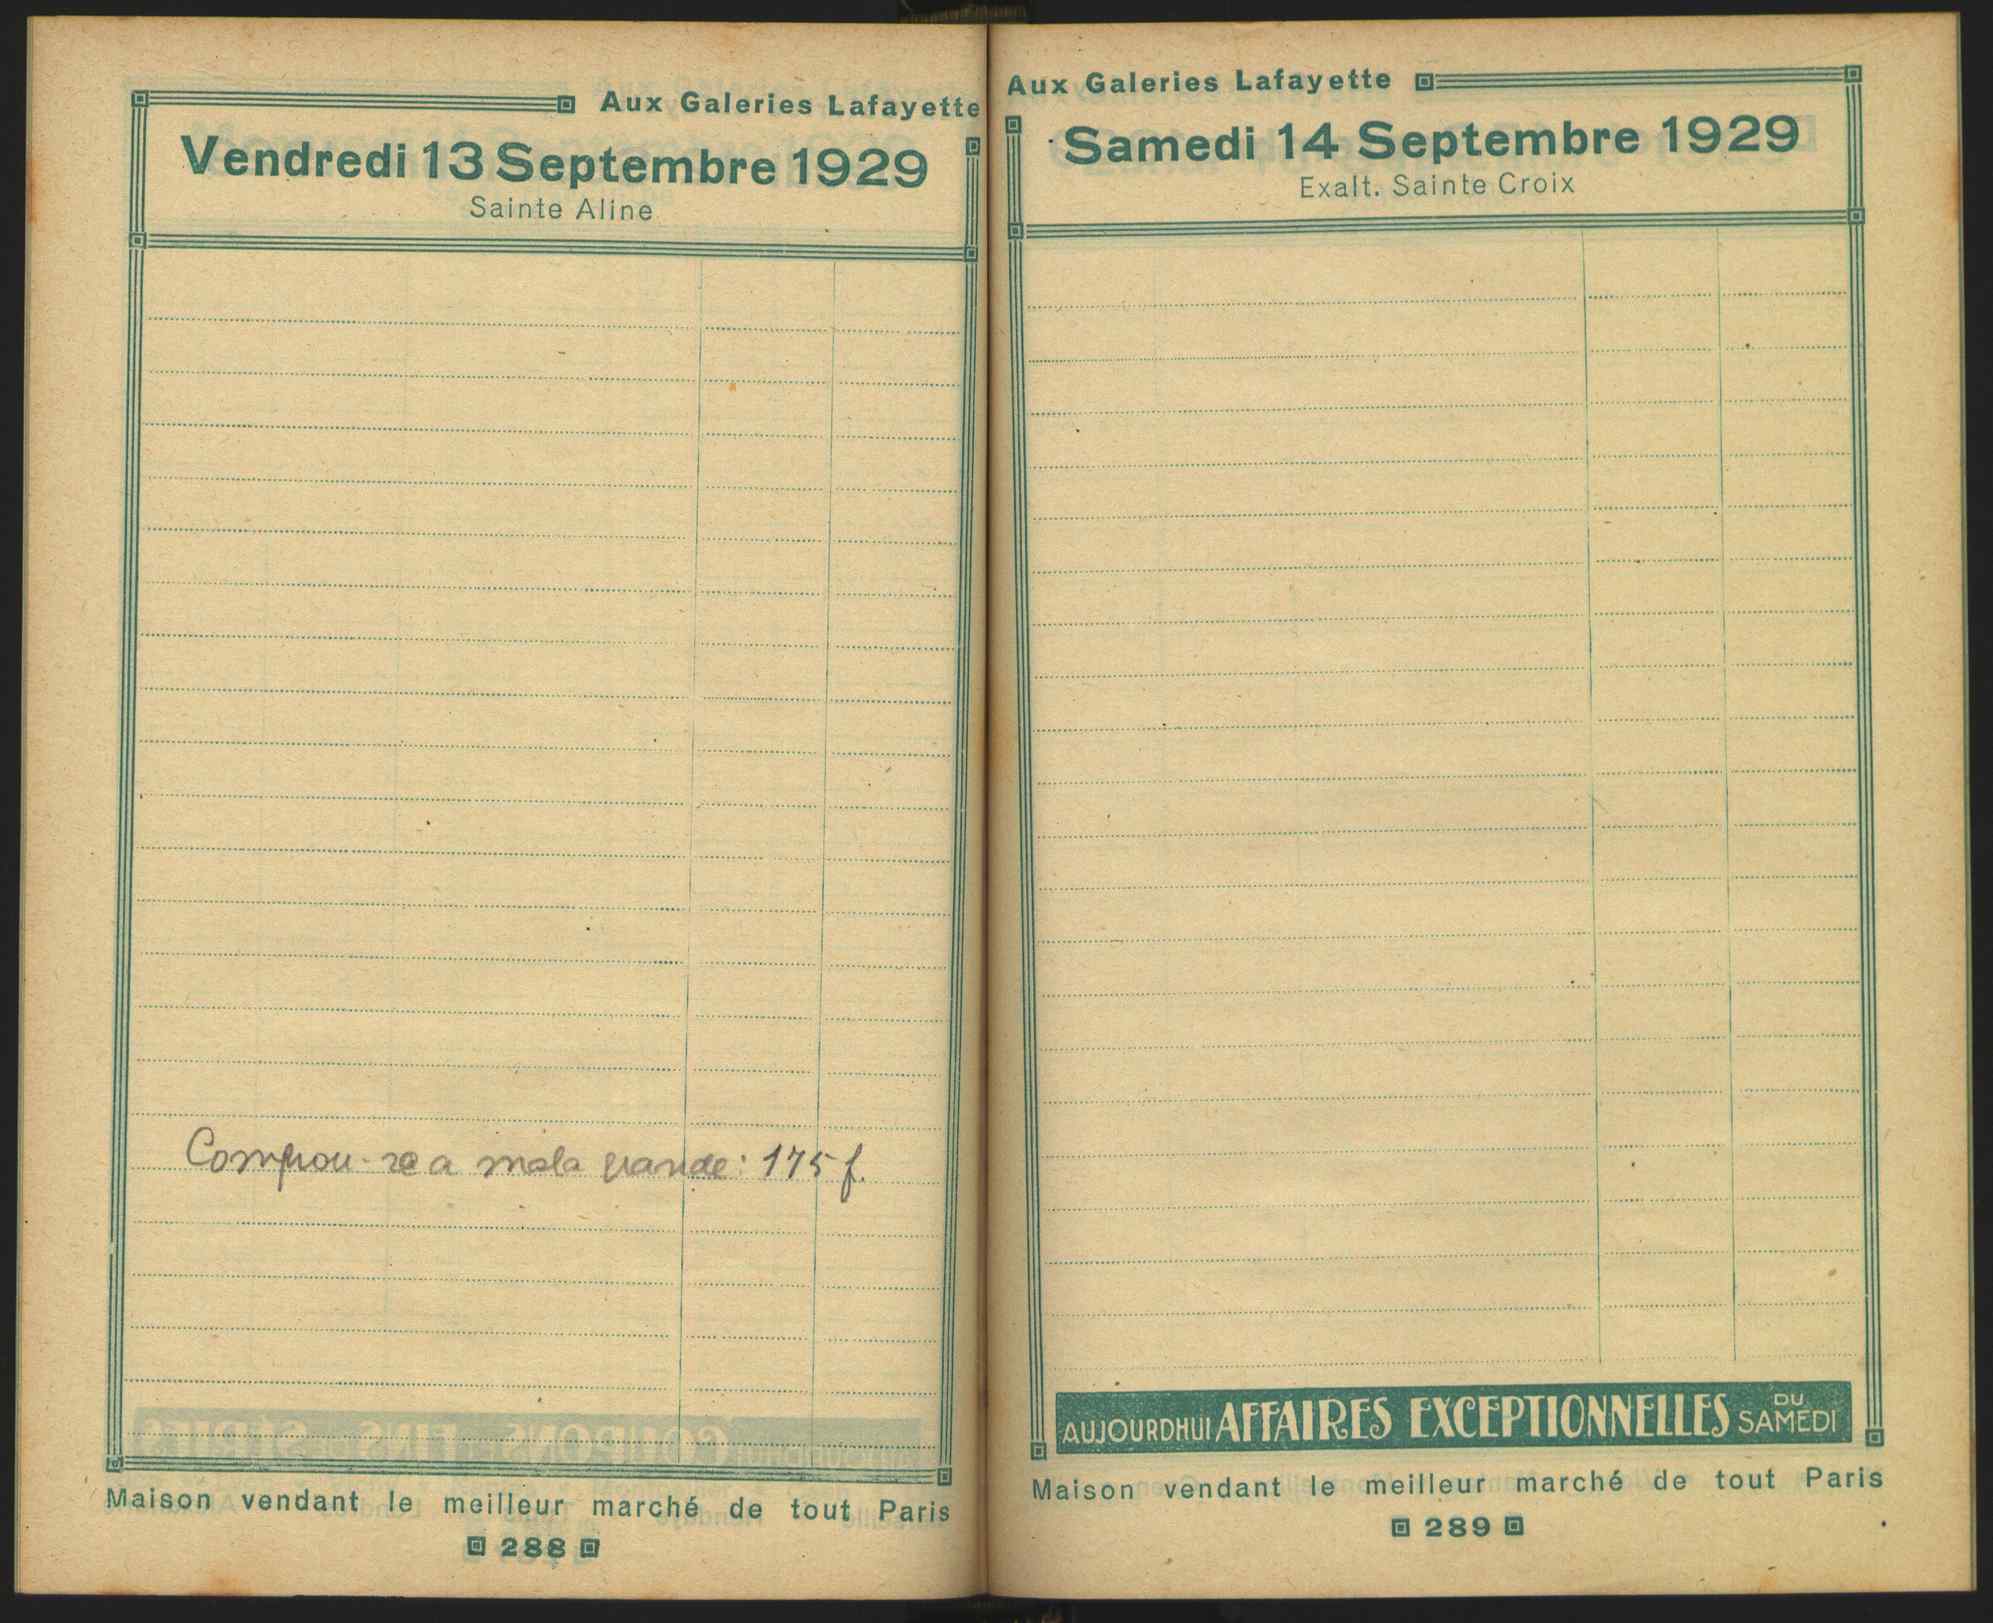 Aux Galeries Lafayette
Vendredi 13 Septembre 1929
Sainte Aline
Comprou-se a mala grande: 175 f.
Maison vendant le meilleur marché de tout Paris
288
Aux Galeries Lafayette
Samedi 14 Septembre 1929
Exalt. Sainte Croix
AUJOURDHUI AFFAIRES EXCEPTIONNELLES DU SAMEDI
Maison vendant le meilleur marché de tout Paris
289